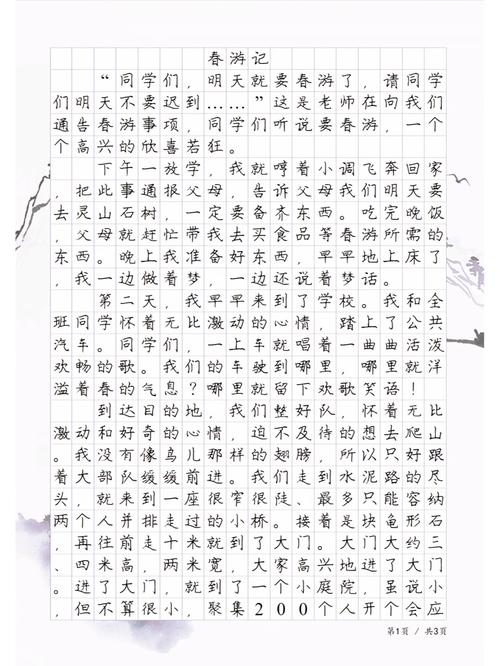 春游记
“同学们，明天就要春游了，请同学
们明天不要迟到……”这是老师在向我们
通告春游事项，同学们听说要春游，一个
个高兴的欣喜若狂。
下午一放学，我就哼着小调飞奔回家
，把此事通报父母，告诉父母我们明天要
去灵山石树，一定要备齐东西。吃完晚饭
，父母就赶忙带我去买食品等春游所需的
东西。晚上我准备好东西，早早地上床了
，我一边做着梦，一边还说着梦话。
第二天，我早早来到了学校。我和全
班同学怀着无比激动的心情，踏上了公共
汽车。同学们，一上车就唱着一曲曲活泼
欢畅的歌。我们的车驶到哪里，哪里就洋
溢着春的气息？哪里就留下欢歌笑语！
到达目的地，我们整好队，怀着无比
激动和好奇的心情，迫不及待的想去爬山
。我没有像鸟儿那样的翅膀，所以只好跟
着大部队缓缓前进。我们走到水泥路的尽
头，就来到一座很窄很陡、最多只能容纳
两个人并排走过的小桥。接着是块龟形石
，再往前走十米就到了大门。大门大约三
、四米高，两米宽，大家高兴地进了大门
。进了大门，就到了一个小庭院，虽说小
，但不算很小，聚集200个人开个会应
第1页 / 共3页